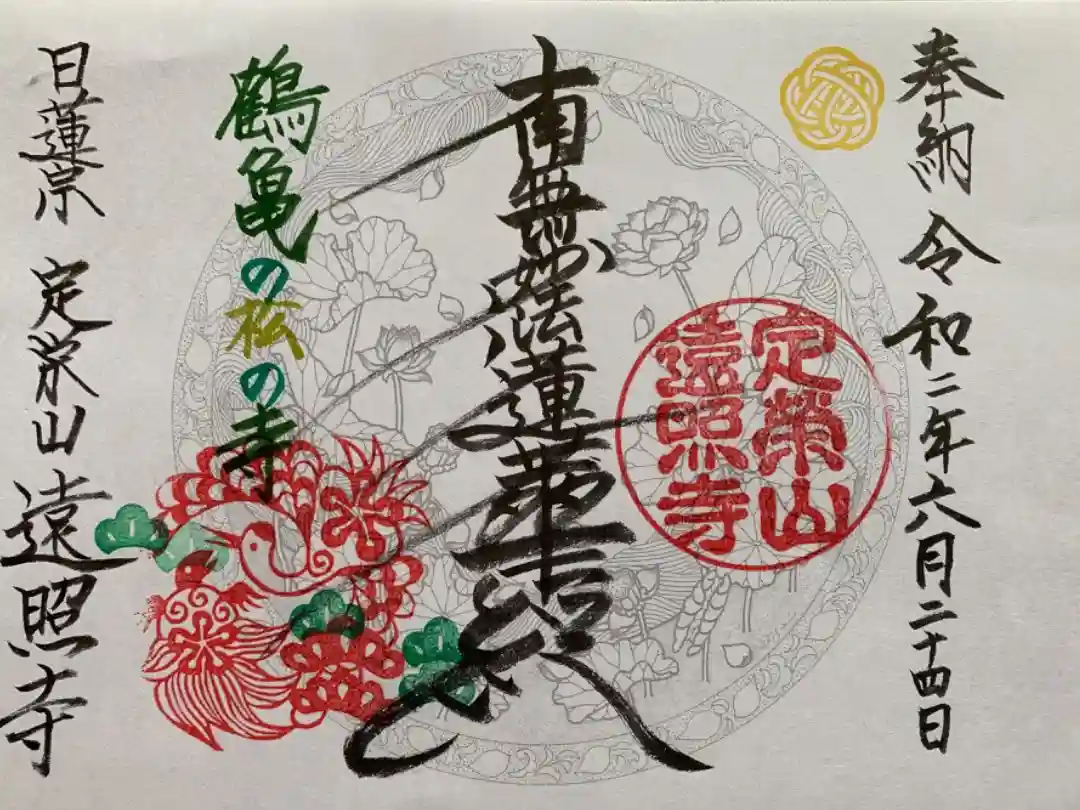 奉納 令和二年六月二十四日
定榮山
遠照寺
南無妙法蓮華経
鶴亀の松の寺
日蓮宗 定栄山 遠照寺